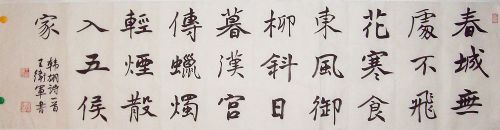 春城無
處不飛
花寒食
東風御
柳斜日
暮漢宮
傳蠟燭
輕煙散
入五侯
家
韩翃诗一首
王衛軍書